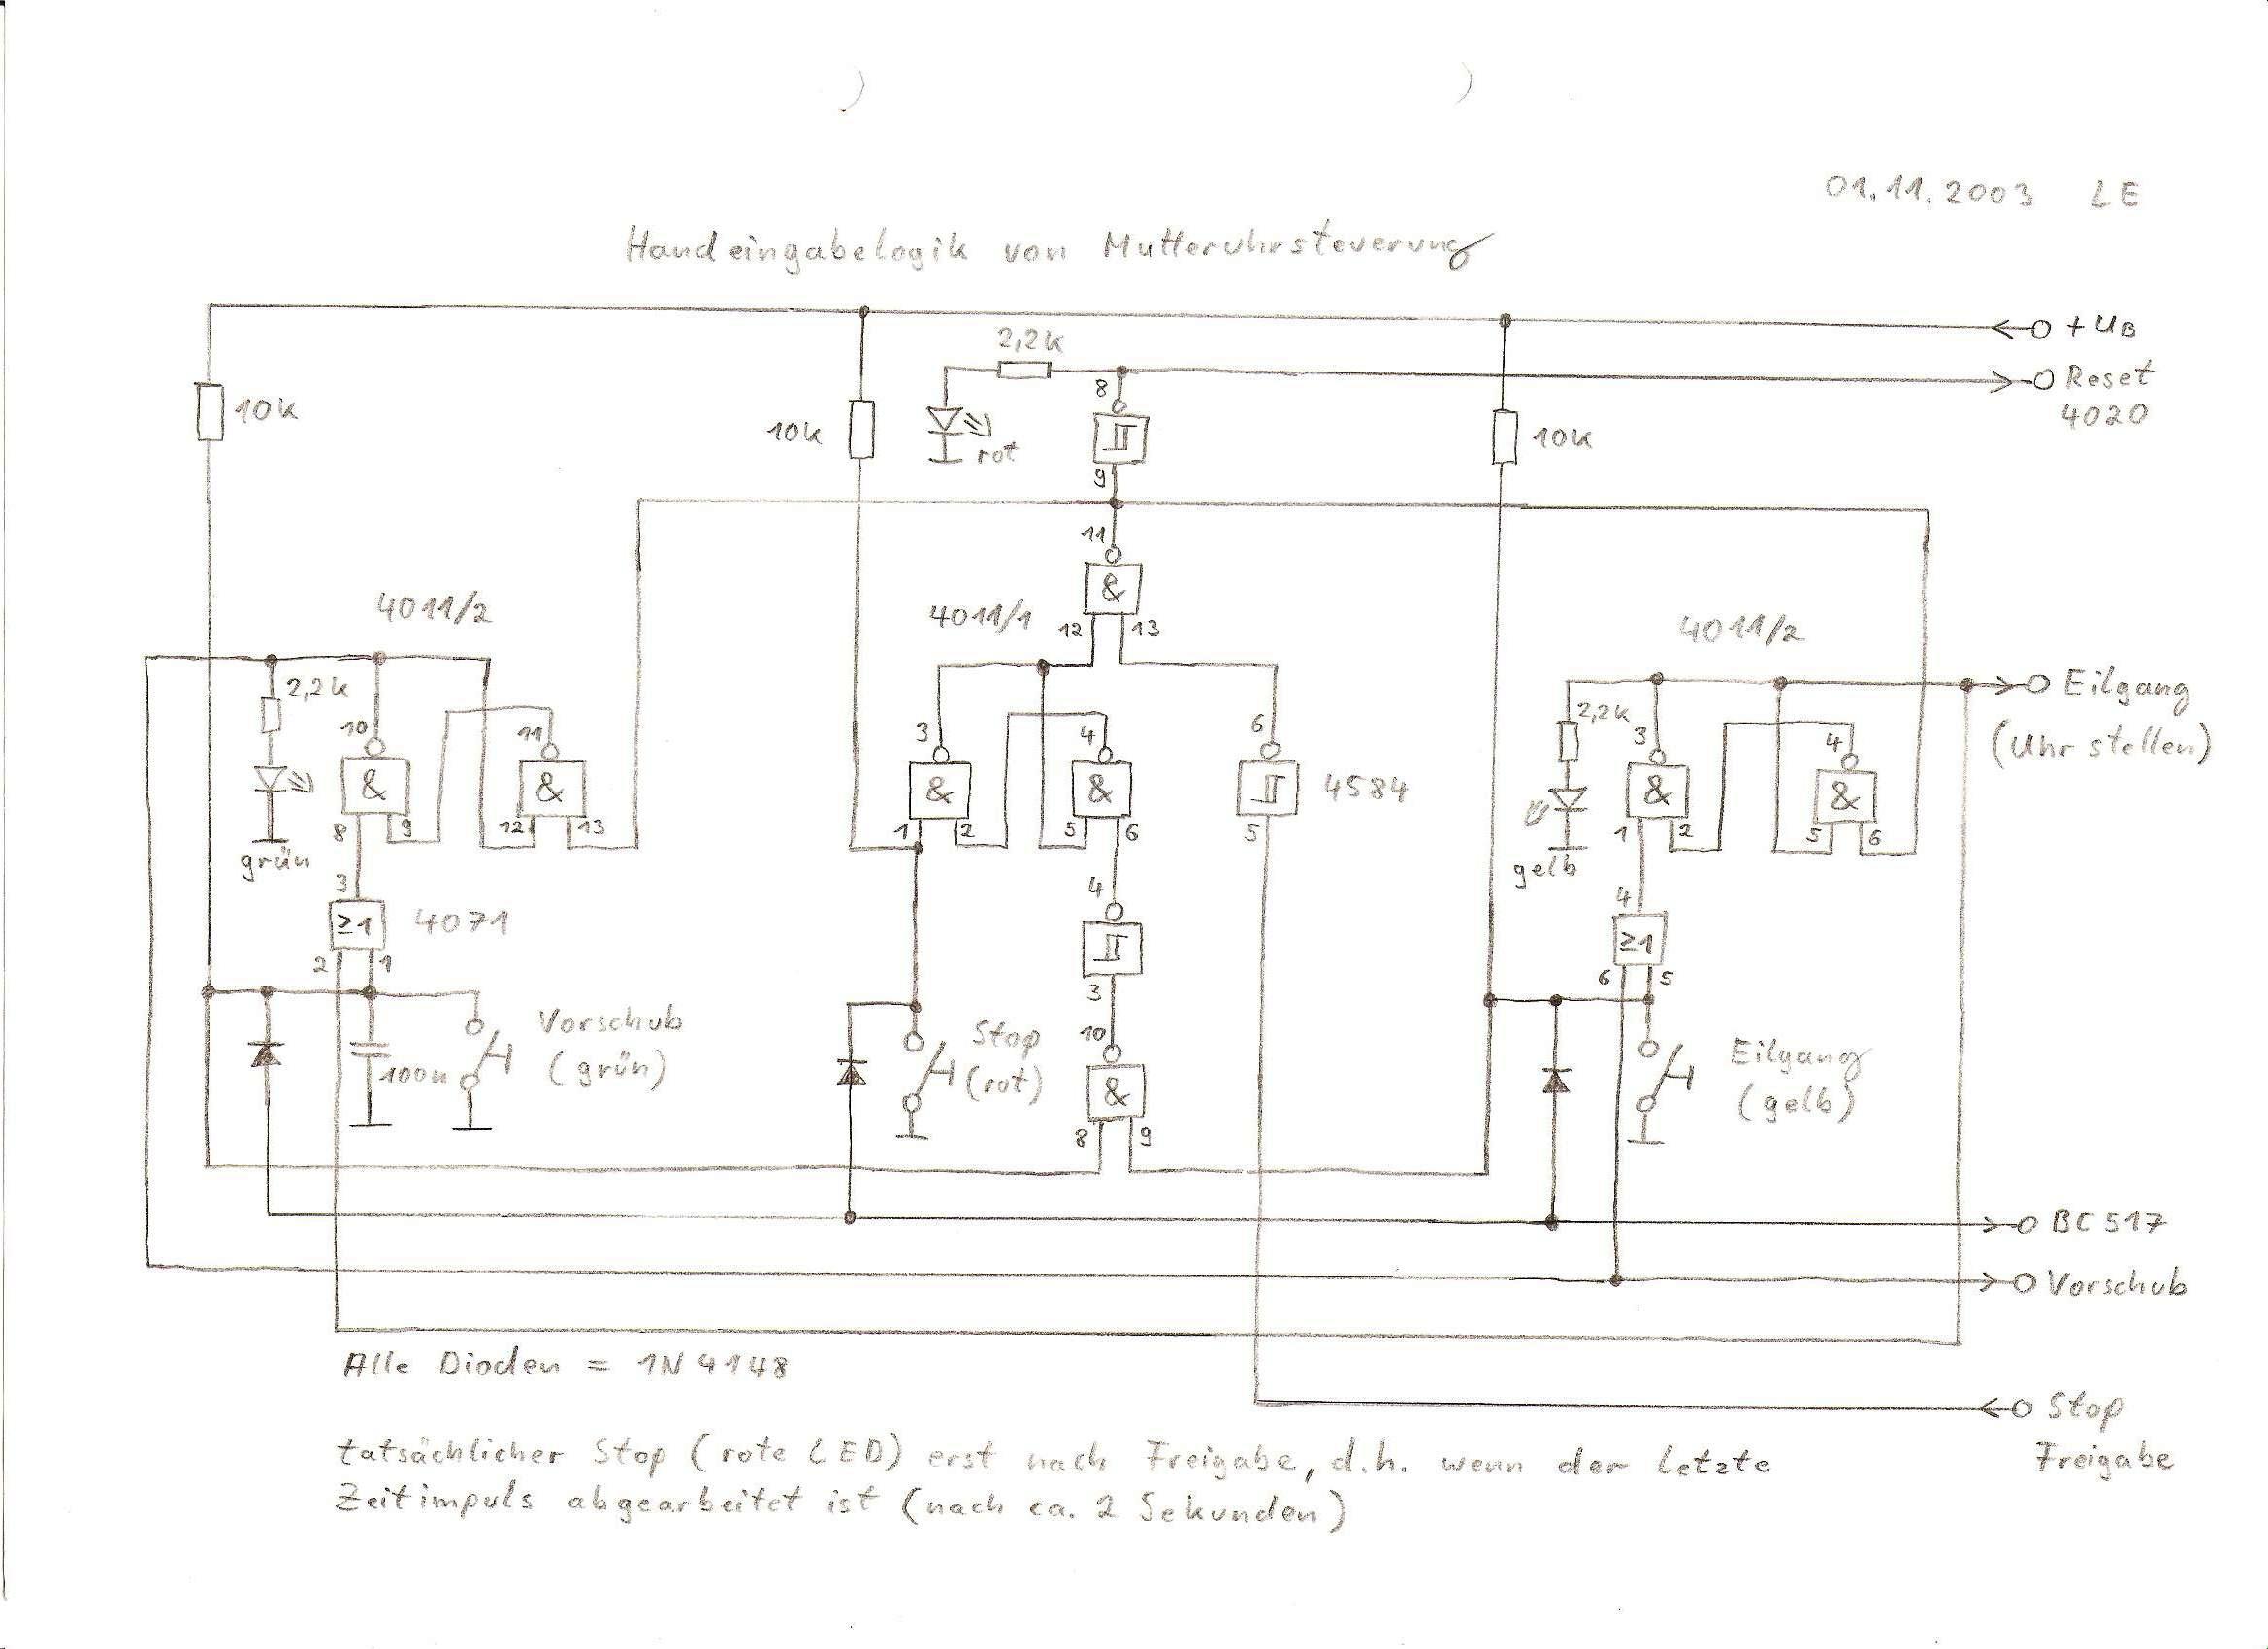 01.11.2003 LE
Handeingabelogik von Mutteruhrsteuerung
+UB
2,2k
Reset
4020
8
10k
10k
rot
10k
9
11
4011/2
4011/1
12
13
4011/2
2,2k
Eilgang
(Uhr stellen)
10
11
3
4
6
2,2k
3
4
&
&
&
&
&
4584
&
&
8
9
12
13
1
2
5
6
5
1
2
5
6
grün
gelb
3
4
4
≥1
4071
≥1
2
1
3
6
5
Vorschub
(grün)
100n
10
Stop
(rot)
&
Eilgang
(gelb)
8
9
BC517
Vorschub
Alle Dioden = 1N4148
Stop
Freigabe
tatsächlicher Stop (rote LED) erst nach Freigabe, d.h. wenn der letzte
Zeitimpuls abgearbeitet ist (nach ca. 2 Sekunden)